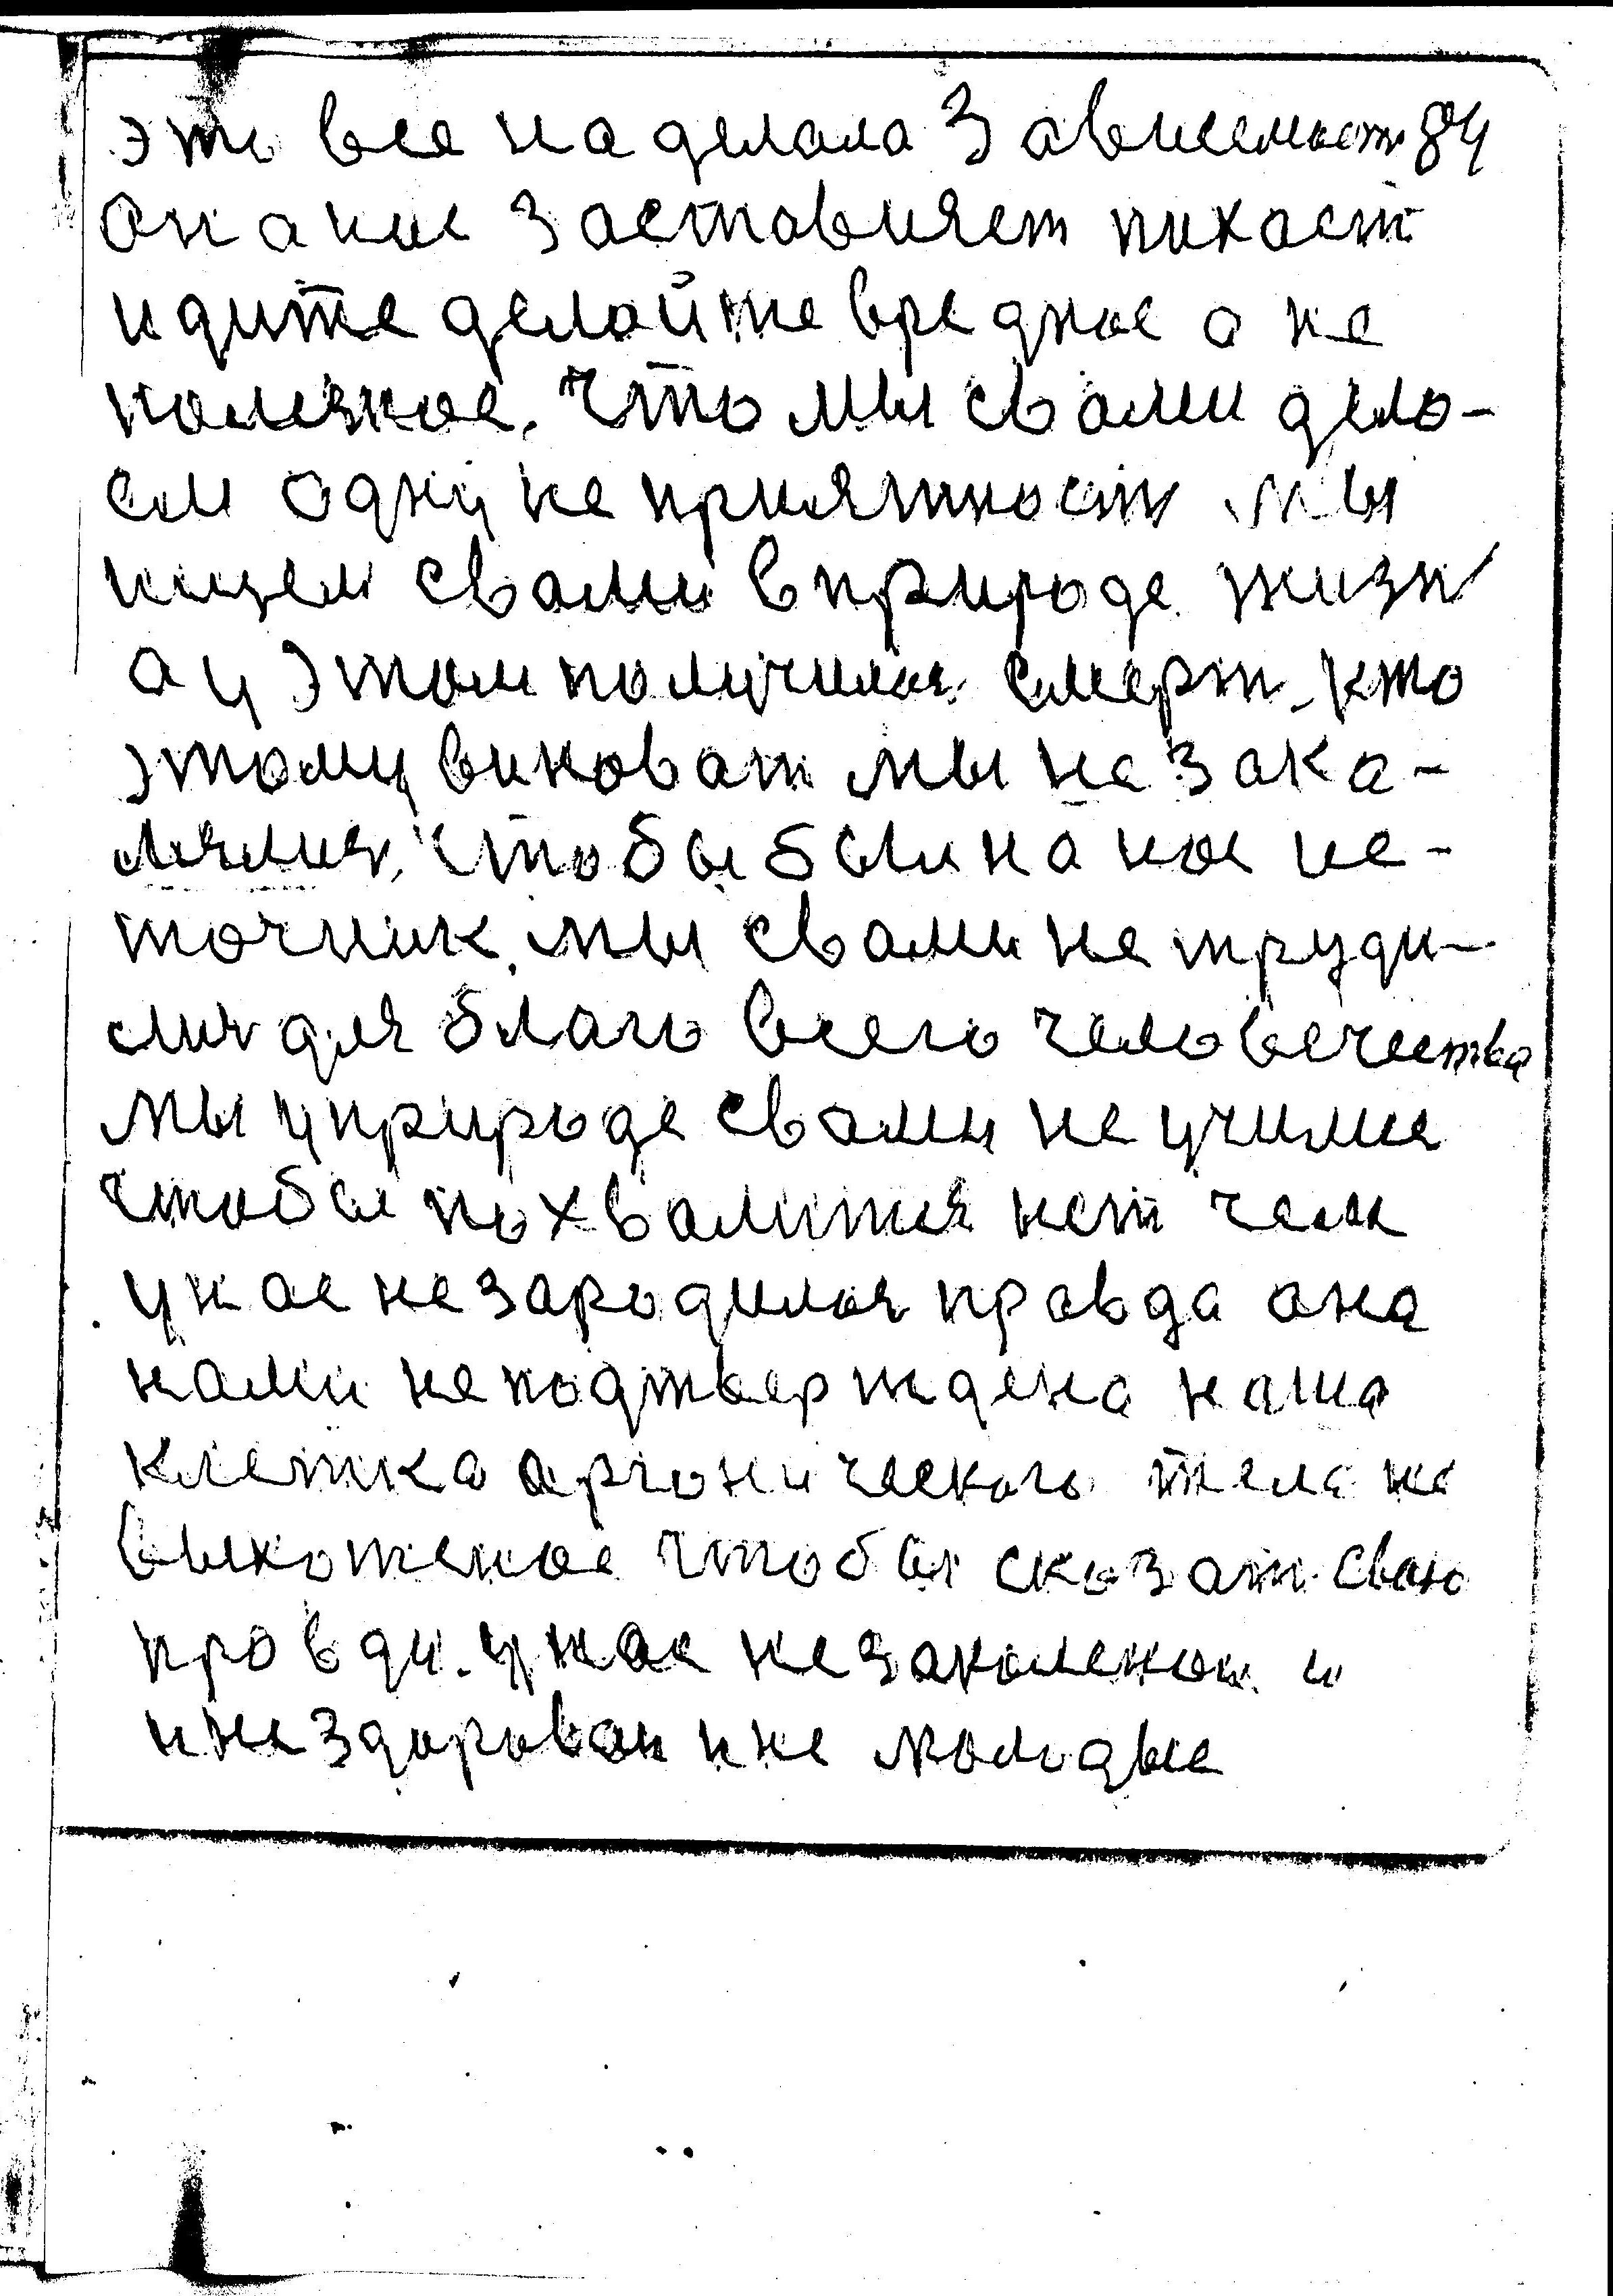 это все наделала Зависемост 84
Она нас Заставляет пихает
идите делайте вредное а не
полезное. Что мы свами дела-
ем одну не приятност мы
ищем свами вприроде жизн
а у этом получился смерт. кто
этому виноват мы не зака-
лялис, Чтобы был на нас ис-
точник. мы свами не труди-
лис для благо всего человечества
мы уприроде свами не училис
Чтобы похвалится нет чем
унас незародилося правда она
нами не подтверждена наша
клетка арганического тела не
выхоженое чтобы сказат сваю
правду. унас не закаленаи и
и не здараваи и не молодые